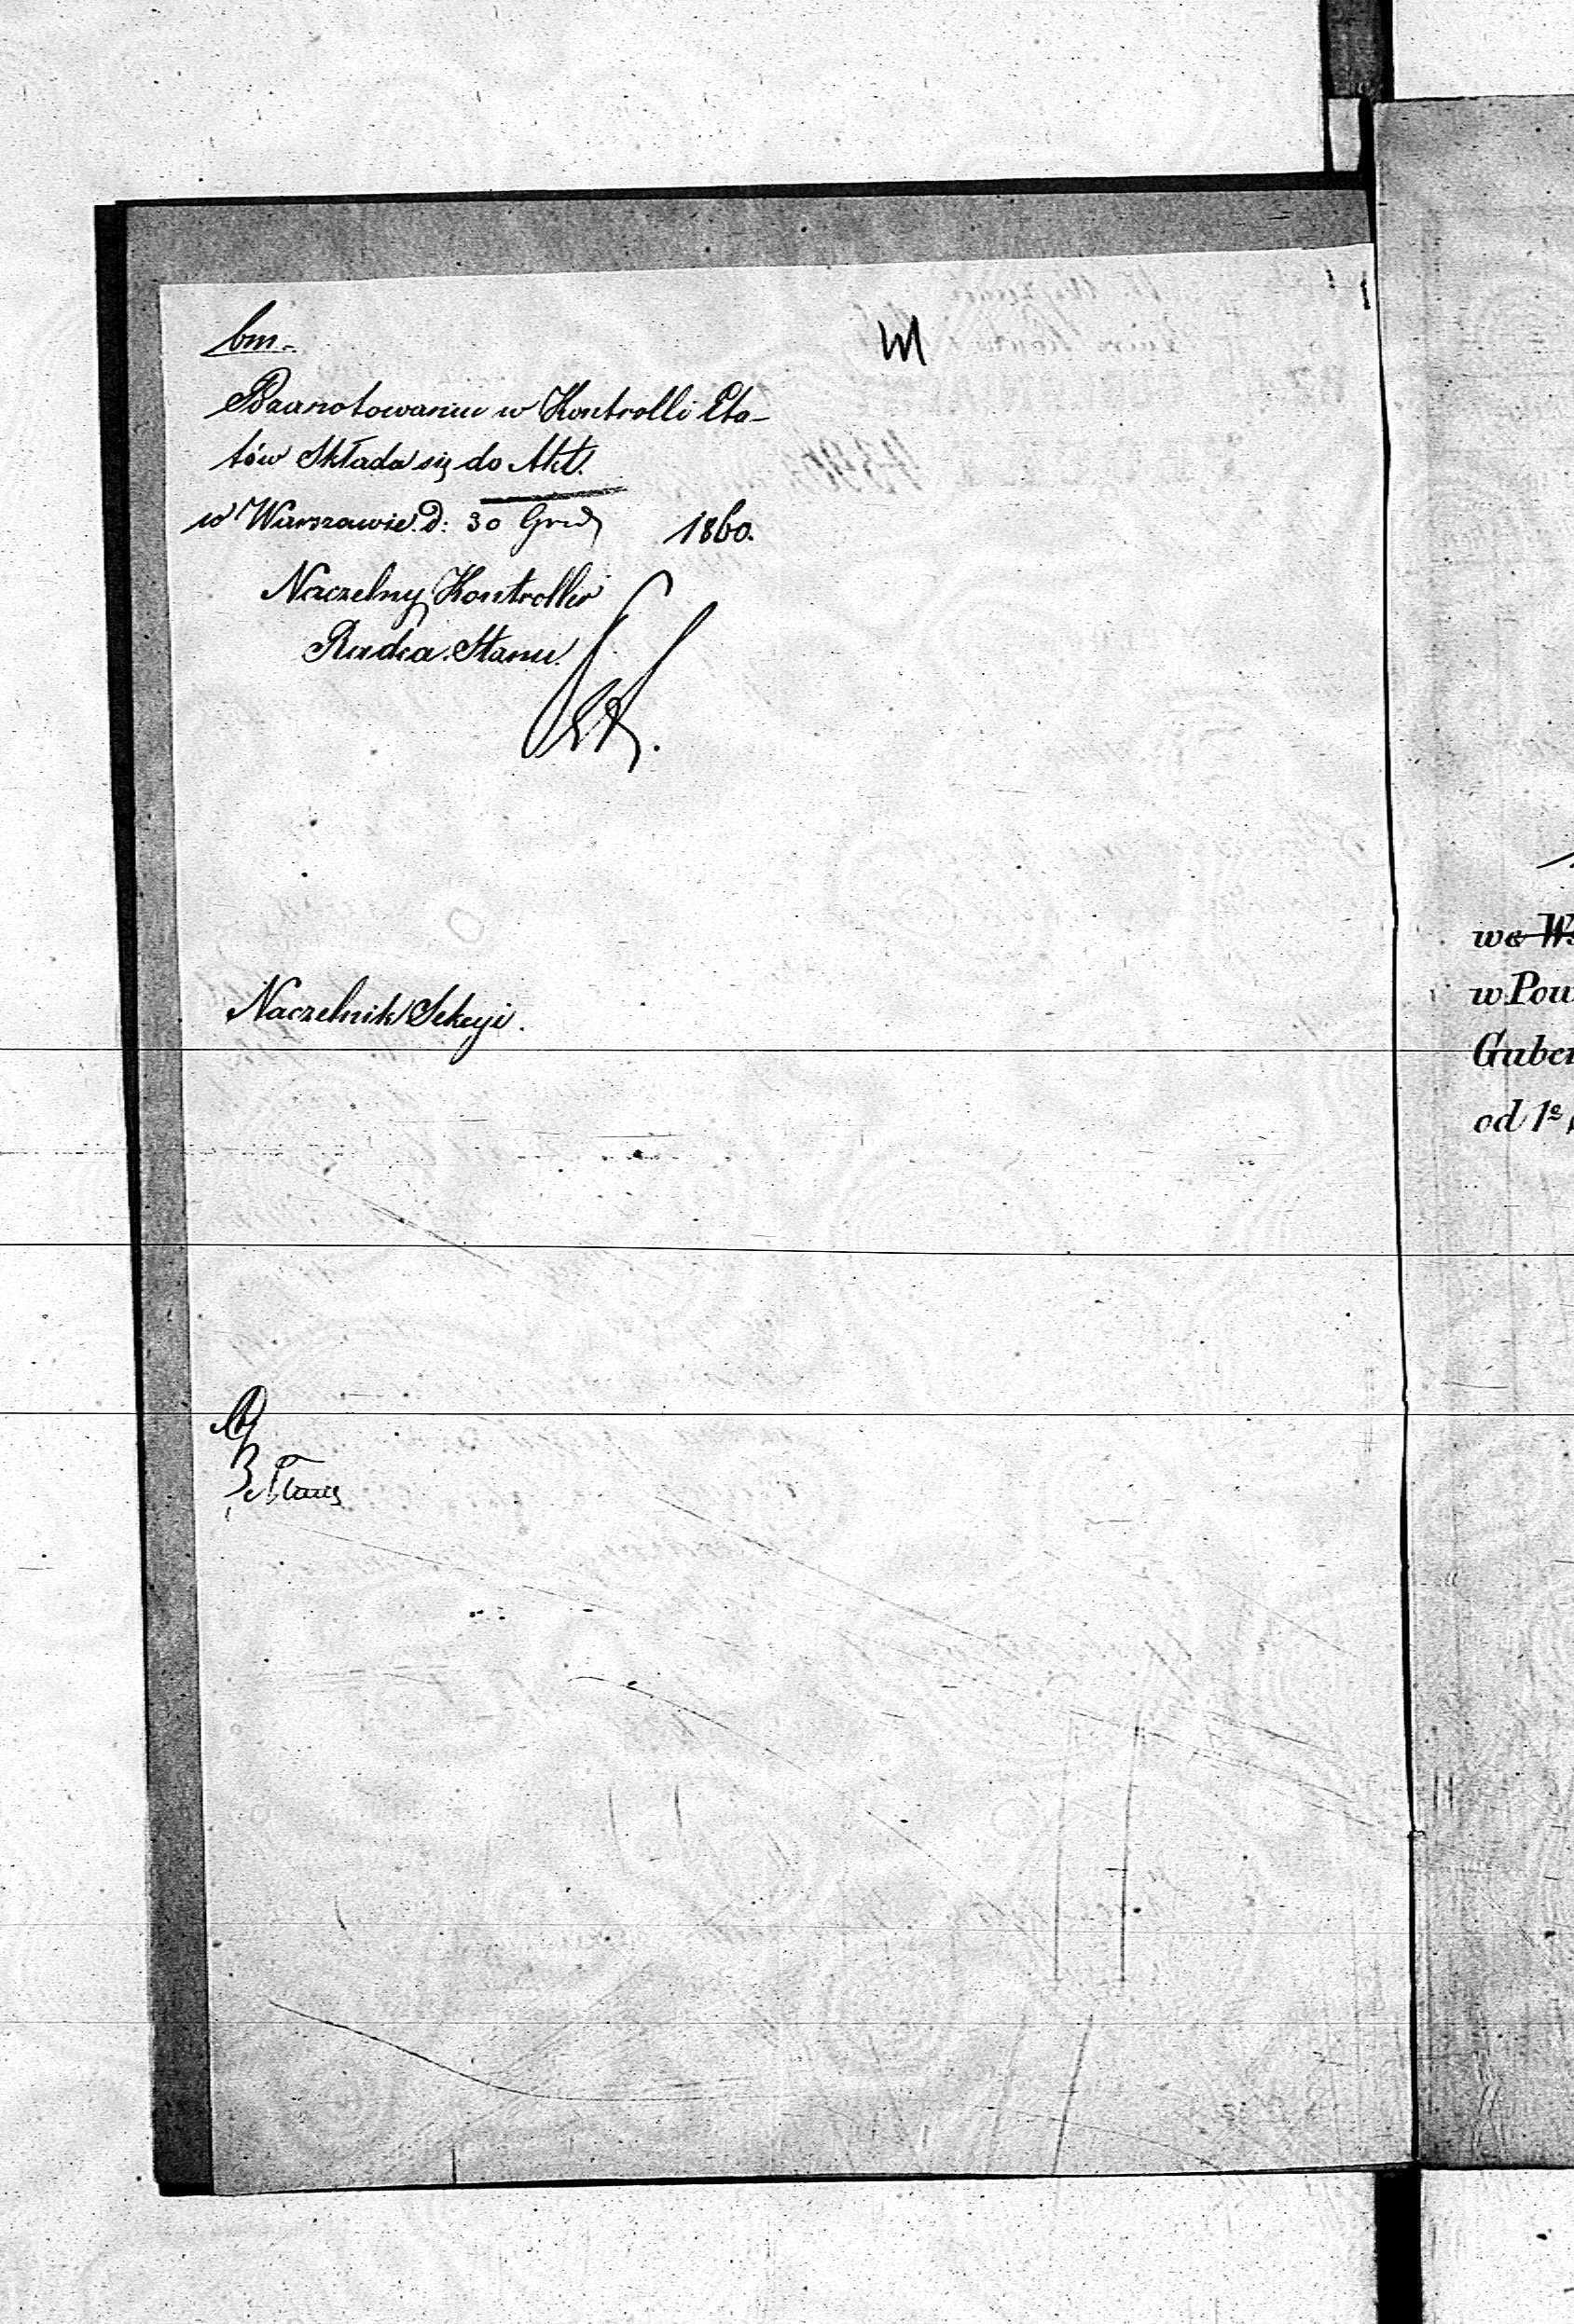 bm.
Po zanotowaniu w Kontrolli Eta-
tów Składa się do Akt.
w Warszawie d: 30 Grud 1860.
Naczelny Kontroller
Radca Stanu
Naczelnik Sekcyi.
we W
w Pow
Guber
od 1º